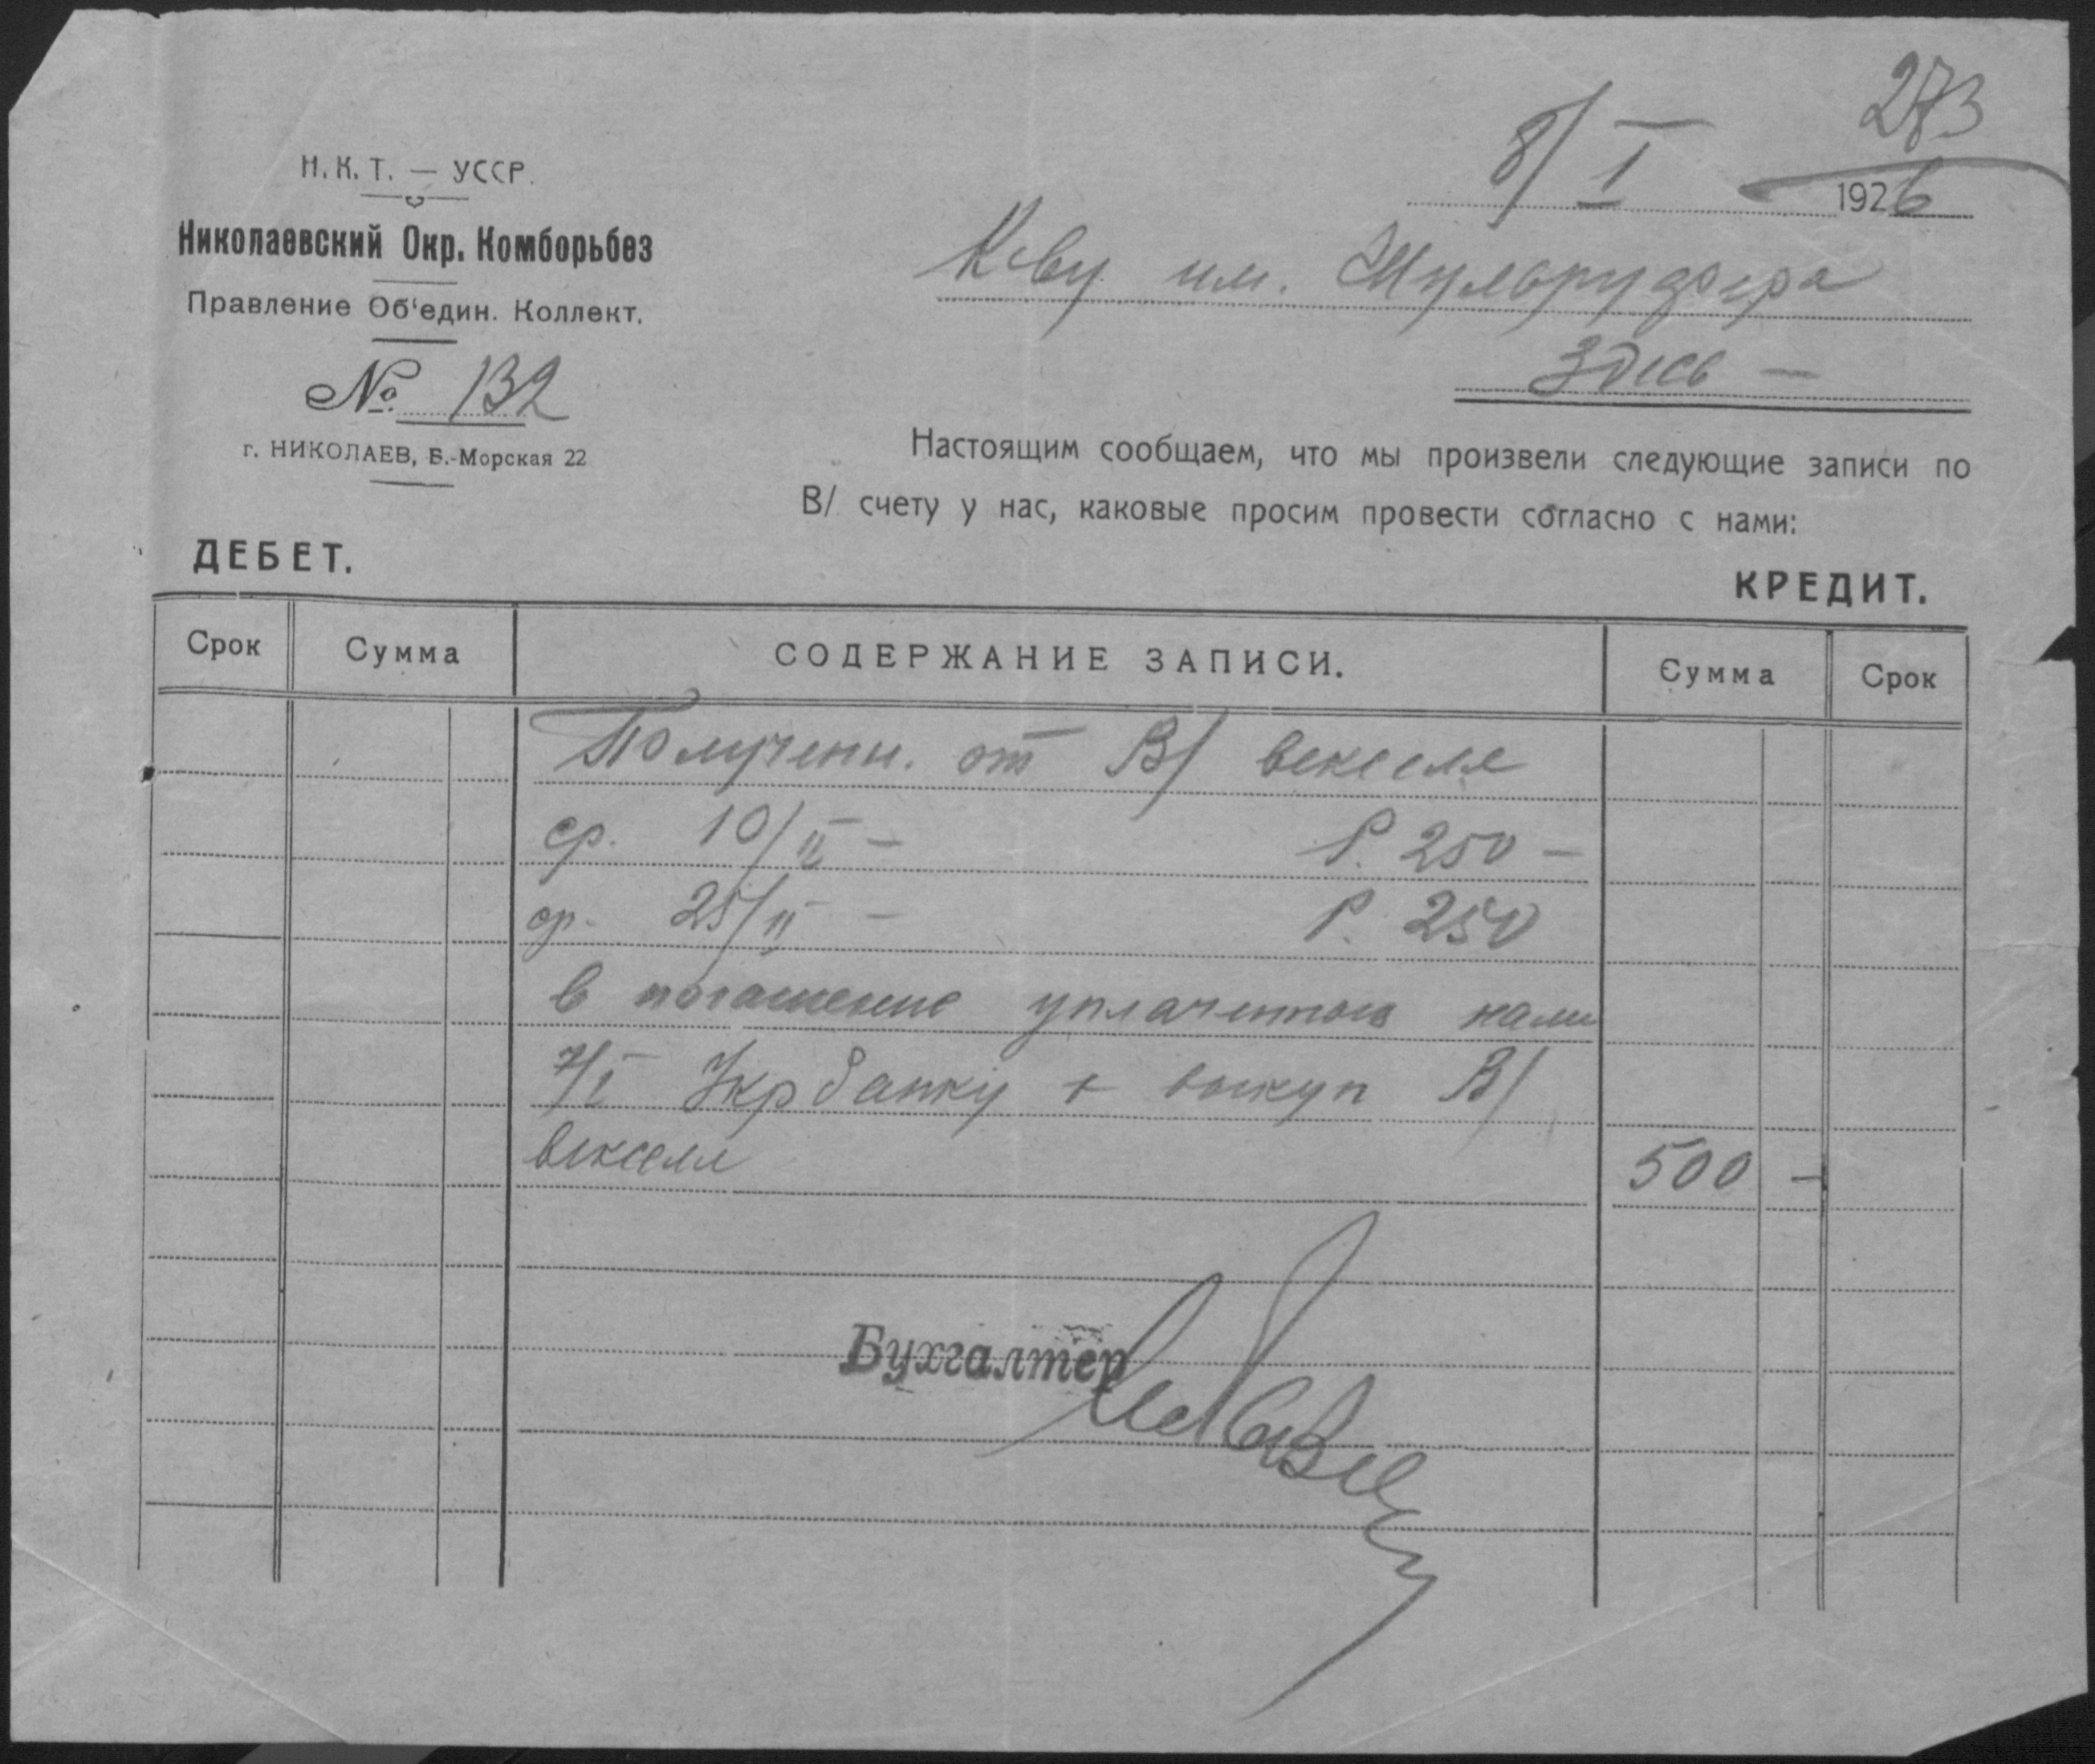 273
8/I 1926
Н. К. Т. — УССР.
Николаевский Окр. Комборьбез
Правление Об'един. Коллект.
№. 132
г. НИКОЛАЕВ, Б.-Морская 22
К-ву им.
Здесь —
Настоящим сообщаем, что мы произвели следующие записи по
В/ счету у нас, каковые просим провести согласно с нами:
ДЕБЕТ.
КРЕДИТ.
Срок Сумма СОДЕРЖАНИЕ ЗАПИСИ. Сумма Срок
Получени. от В/ векселя
ср. 10/II — Р. 250 —
ср. 25/II — Р. 250
в погашение уплаченного нами
7/I Укрбанку выкуп В/
векселя 500 —
Бухгалтер